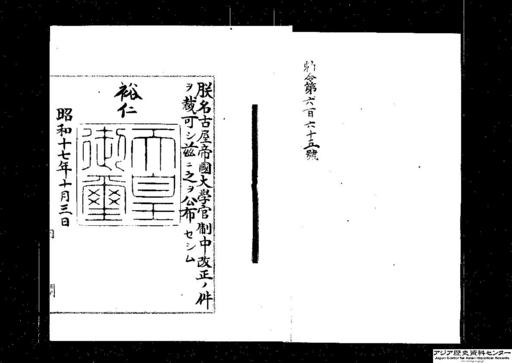 勅令第六百六十五號
朕名古屋帝國大學官制中改正ノ件
ヲ裁可シ茲ニ之ヲ公布セシム
裕仁
天皇
御璽
昭和十七年十月三日
アジア歴史資料センター
Japan Center for Asian Historical Records